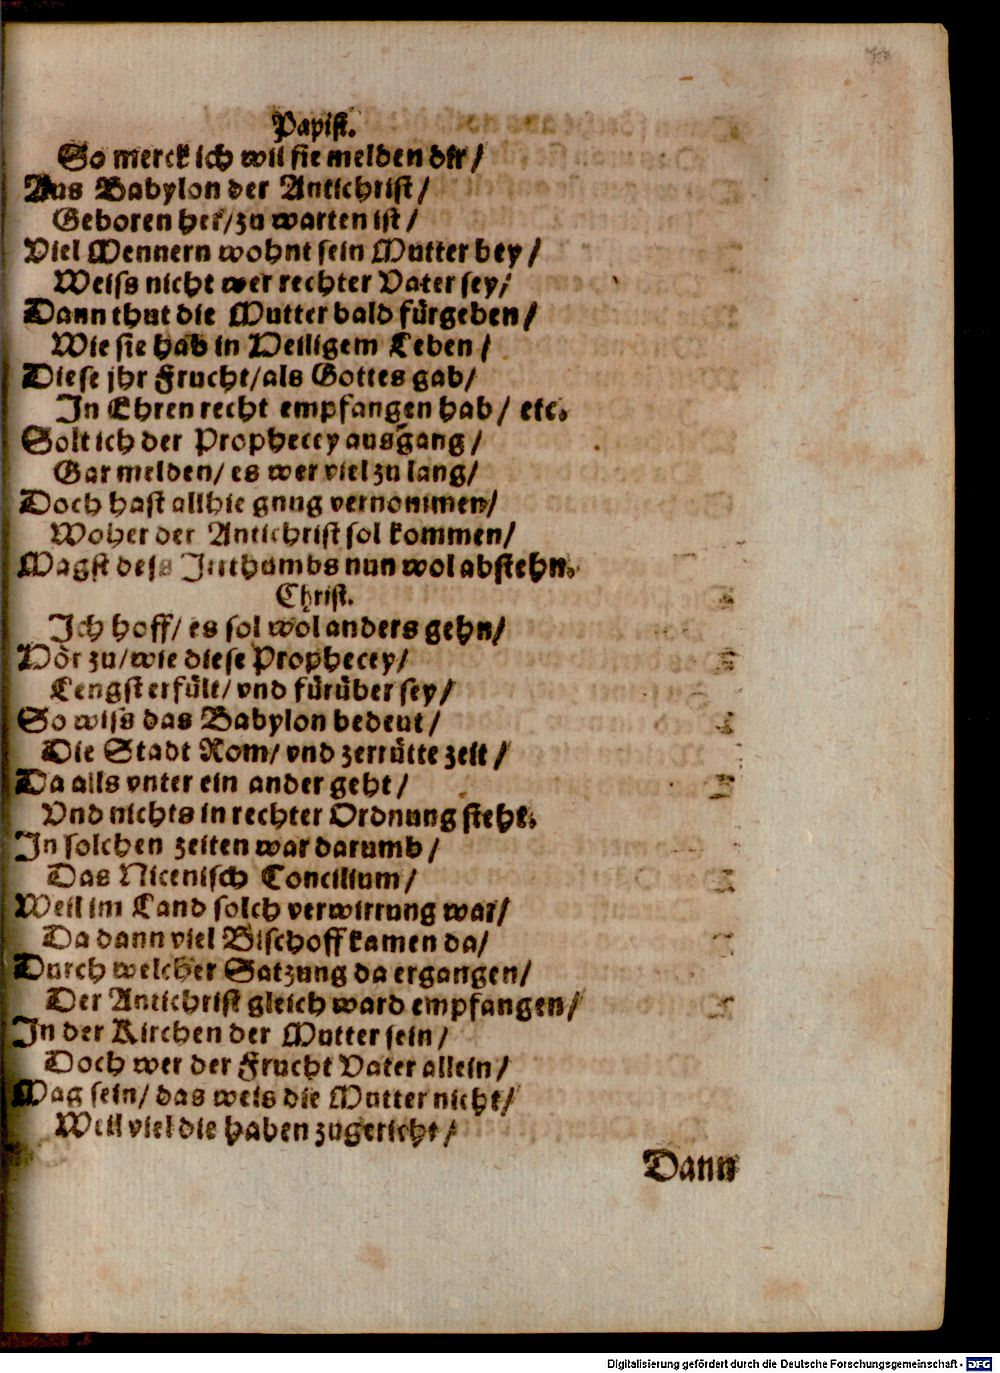 Papist.
So merck ich wil sie melden dir/
Aus Babylon der Antichrist/
Geboren her/zu warten ist/
Viel Mennern wohnt sein Mutter bey/
Weiss nicht wer rechter Vater sey/
Dann thut die Mutter bald fürgeben/
Wie sie hab in Heiligem Leben/
Diese jhr Frucht/als Gottes gab/
In Ehren recht empfangen hab/ etc.
Solt ich der Prophecey ausgang/
Gar melden/ es wer viel zu lang/
Doch hast allhie gnug vernommen/
Woher der Antichrist sol kommen/
Magst dess Irrthumbs nun wol abstehn.
Christ.
Ich hoff/ es sol wol anders gehn/
Hör zu/wie diese Prophecey/
Lengst erfült/ vnd fürüber sey/
So wiss das Babylon bedeut/
Die Stadt Rom/ vnd zerrütte zeit/
Da alls vnter ein ander geht/
Vnd nichts in rechter Ordnung steht.
In solchen zeiten war darumb/
Das Nicenisch Concilium/
Weil im Land solch verwirrung war/
Da dann viel Bischoff kamen da/
Durch welcher Satzung da ergangen/
Der Antichrist gleich ward empfangen/
In der Kirchen der Mutter sein/
Doch wer der Frucht Vater allein/
Mag sein/ das weis die Mutter nicht/
Weil viel die haben zugericht/
Dann
Digitalisierung gefördert durch die Deutsche Forschungsgemeinschaft - DFG